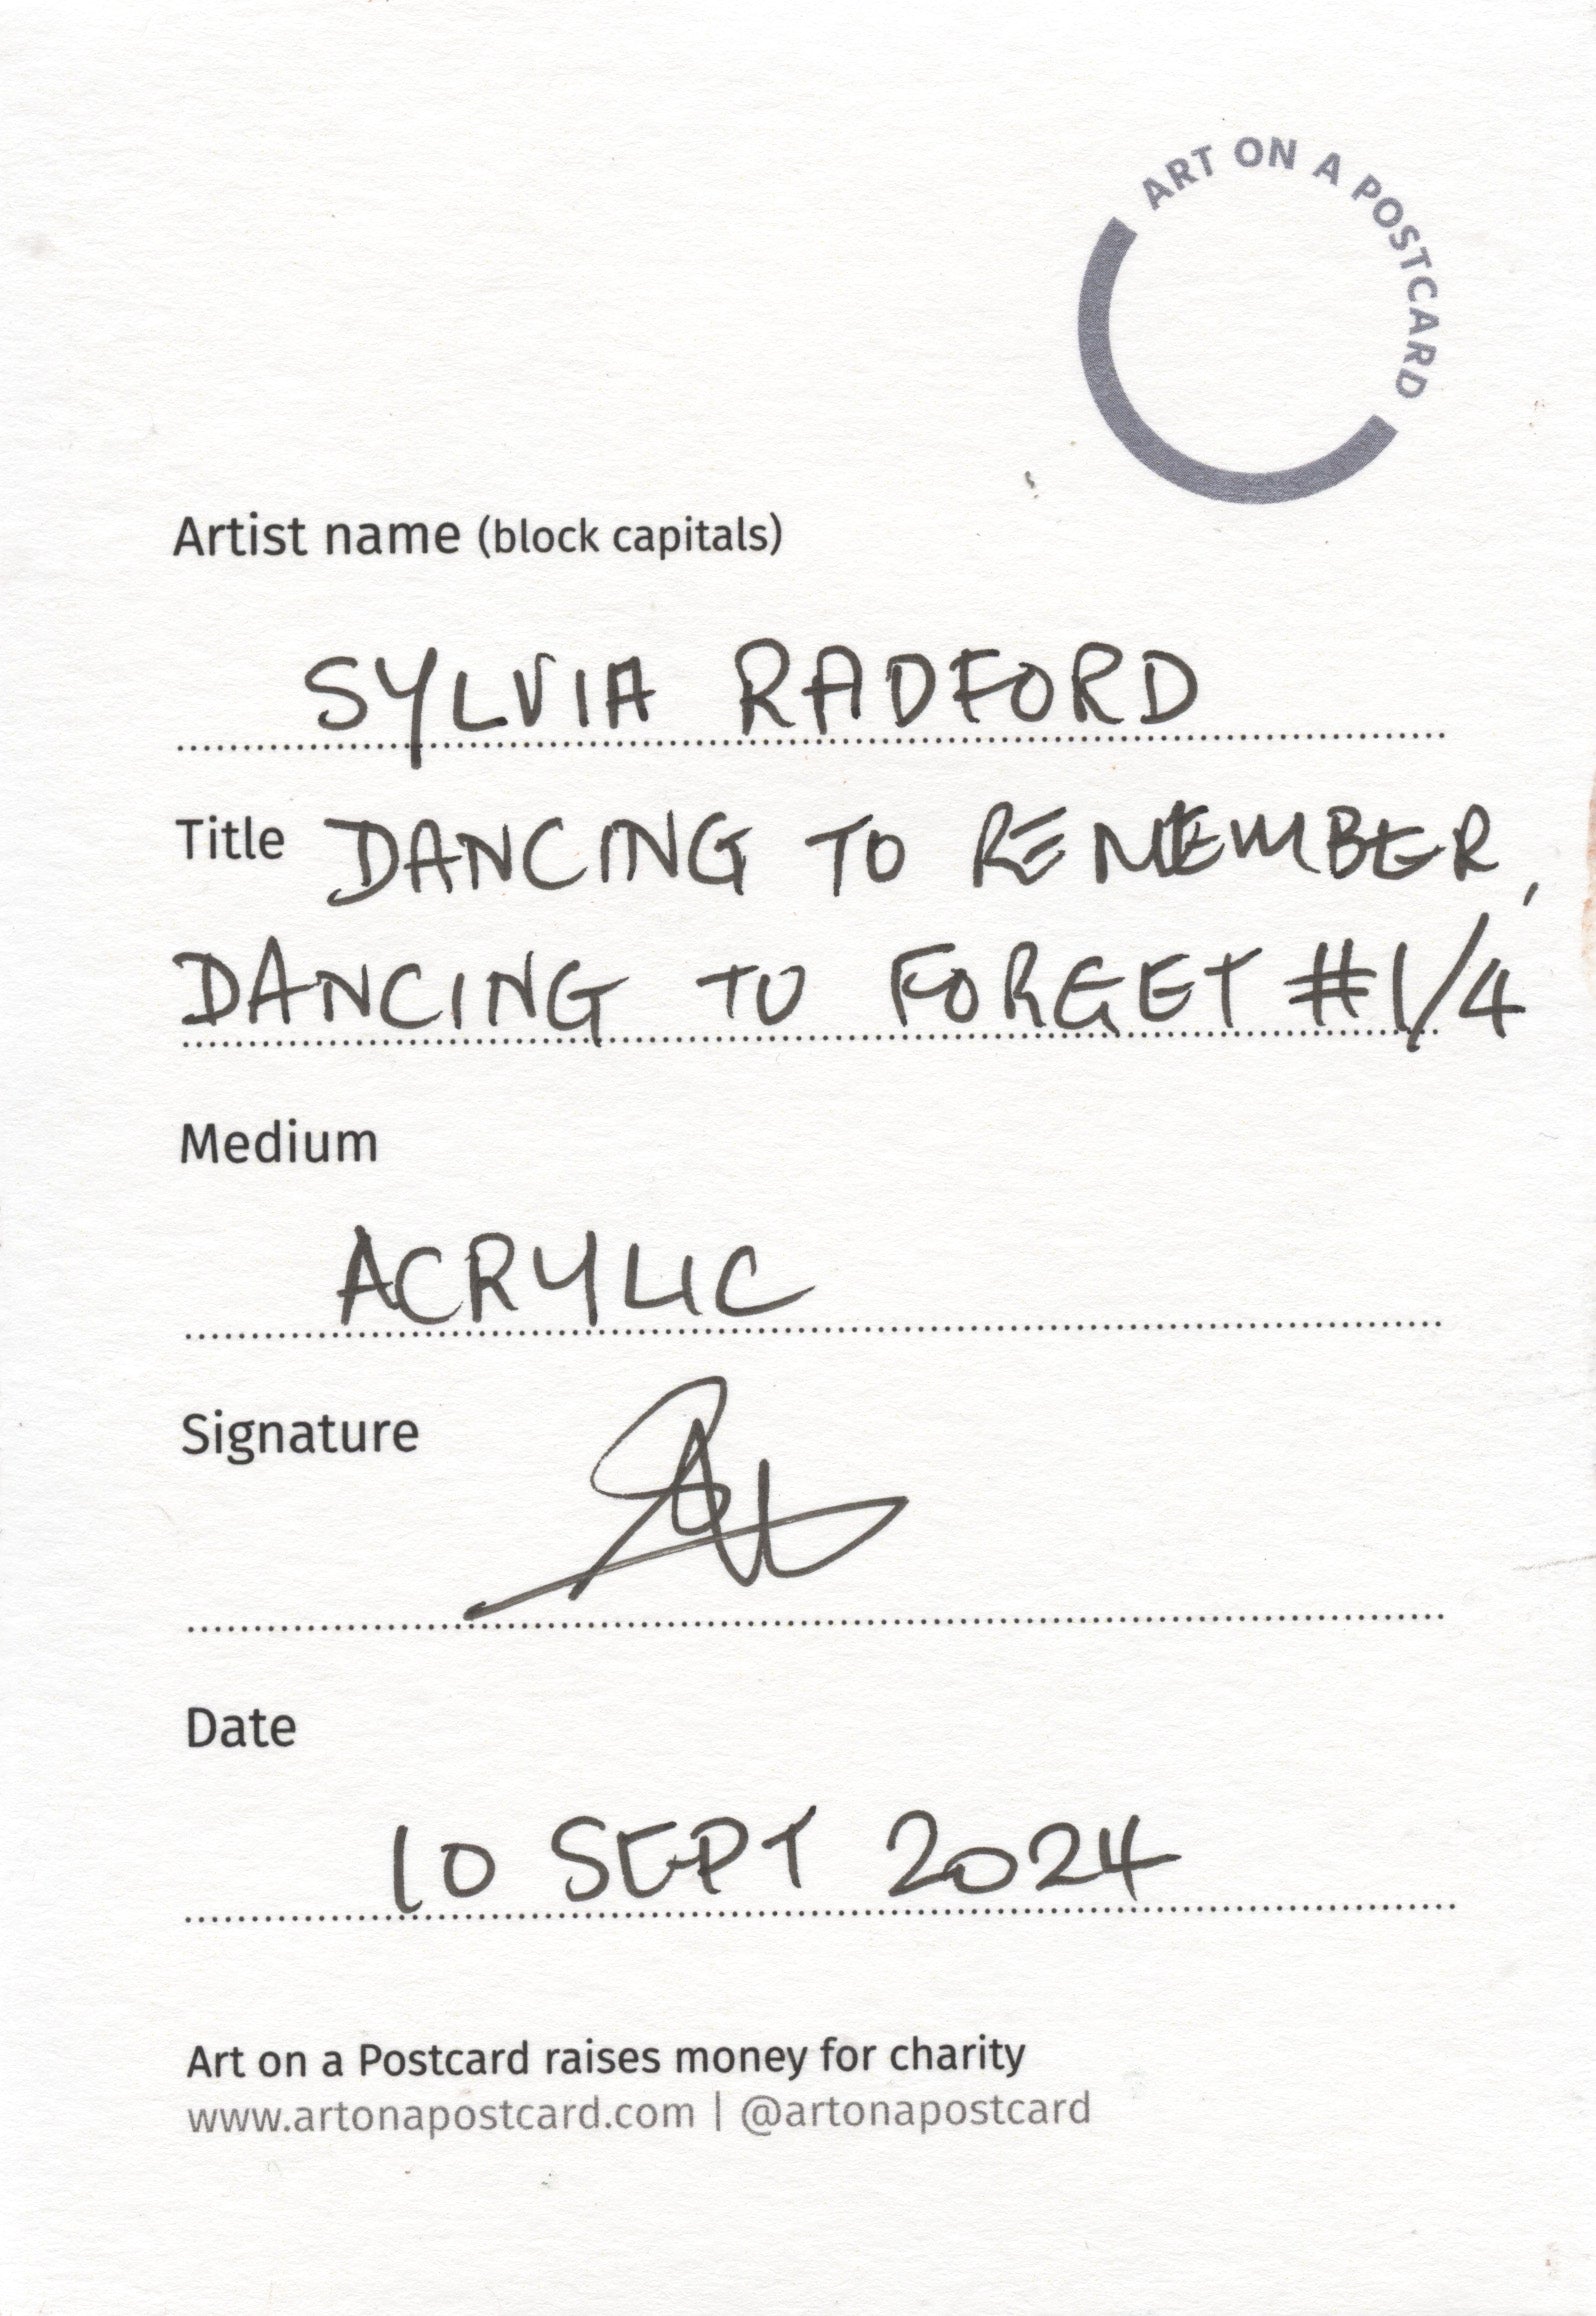 ART ON A POSTCARD
Artist name (block capitals)
SYLVIA RADFORD
Title DANCING TO REMEMBER,
DANCING TO FORGET #1/4
Medium
ACRYLIC
Signature
Date
10 SEPT 2024
Art on a Postcard raises money for charity
www.artonapostcard.com | @artonapostcard